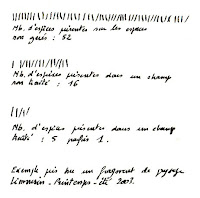 Nb. d'espèces présentes sur les espaces
non gérés : 52
Nb. d'espèces présentes dans un champ
non traité : 16
Nb. d'espèces présentes dans un champ
traité : 5 parfois 1.
Exemple pris sur un fragment de paysage
Limousin - Printemps - été 2003.